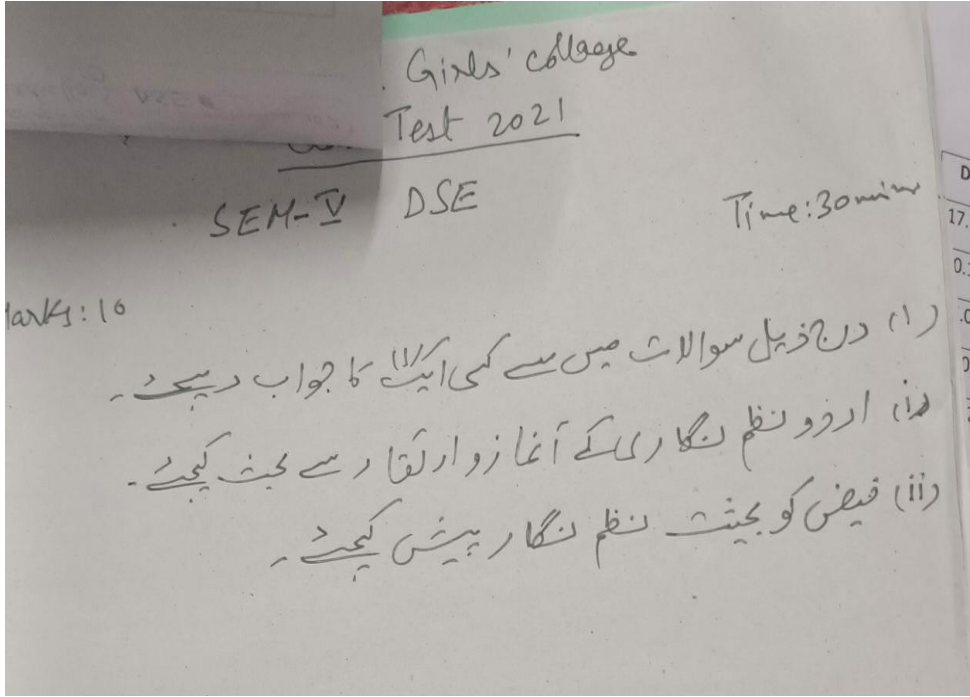 Girls' college
Test 2021
SEM-V DSE
Time: 30 mins
Marks: 10
(۱) درج ذیل سوالات میں سے کسی ایک (۱) کا جواب دیجئے۔
(i) اردو نظم نگاری کے آغاز و ارتقاء سے بحث کیجئے۔
(ii) فیض کو بحیثت نظم نگار پیش کیجئے۔